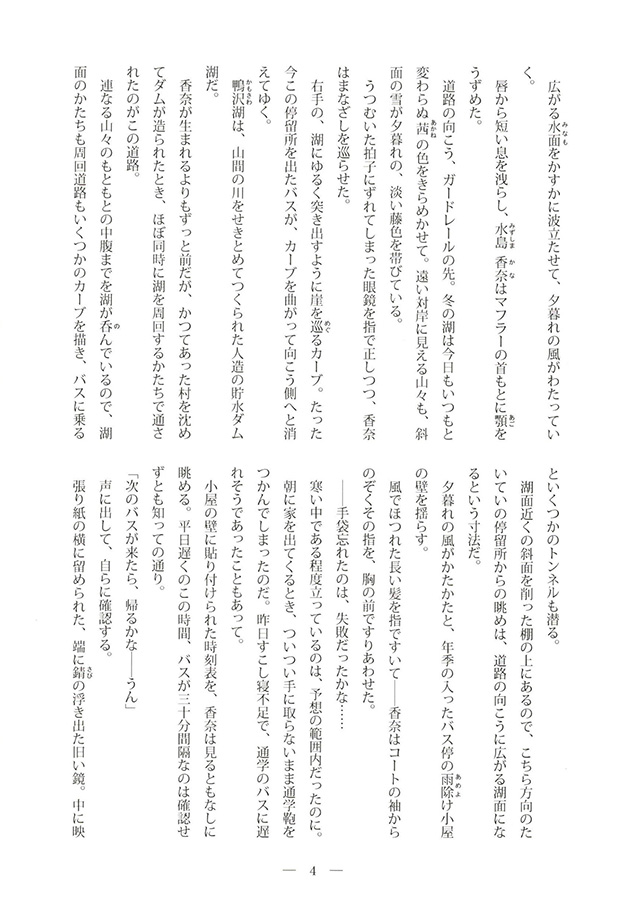 広がる水面をかすかに波立たせて、夕暮れの風がわたってい
く。
唇から短い息を洩らし、水島 香奈はマフラーの首もとに顎を
うずめた。
道路の向こう、ガードレールの先。冬の湖は今日もいつもと
変わらぬ茜の色をきらめかせて。遠い対岸に見える山々も、斜
面の雪が夕暮れの、淡い藤色を帯びている。
うつむいた拍子にずれてしまった眼鏡を指で正しつつ、香奈
はまなざしを巡らせた。
右手の、湖にゆるく突き出すように崖を巡るカーブ。たった
今この停留所を出たバスが、カーブを曲がって向こう側へと消
えてゆく。
鴨沢湖は、山間の川をせきとめてつくられた人造の貯水ダム
湖だ。
香奈が生まれるよりもずっと前だが、かつてあった村を沈め
てダムが造られたとき、ほぼ同時に湖を周回するかたちで通さ
れたのがこの道路。
連なる山々のもともとの中腹までを湖が呑んでいるので、湖
面のかたちも周回道路もいくつかのカーブを描き、バスに乗る
といくつかのトンネルも潜る。
湖面近くの斜面を削った棚の上にあるので、こちら方向のた
いていの停留所からの眺めは、道路の向こうに広がる湖面にな
るという寸法だ。
夕暮れの風がかたかたと、年季の入ったバス停の雨除け小屋
の壁を揺らす。
風でほつれた長い髪を指ですいて――香奈はコートの袖から
のぞくその指を、胸の前ですりあわせた。
――手袋忘れたのは、失敗だったかな……
寒い中である程度立っているのは、予想の範囲内だったのに。
朝に家を出てくるとき、ついつい手に取らないまま通学鞄を
つかんでしまったのだ。昨日すこし寝不足で、通学のバスに遅
れそうであったこともあって。
小屋の壁に貼り付けられた時刻表を、香奈は見るともなしに
眺める。平日遅くのこの時間、バスが三十分間隔なのは確認せ
ずとも知っての通り。
「次のバスが来たら、帰るかな――うん」
声に出して、自らに確認する。
張り紙の横に留められた、端に錆の浮き出た旧い鏡。中に映
― 4 ―